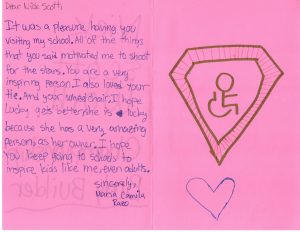 Dear Nick Scott,
It was a pleasure having you
visiting my school. All of the things
that you said motivated me to shoot
for the stars. You are a very
inspiring person. I also loved your
tie. And your wheel chair. I hope
Lucky gets better she is lucky
because she has a very amazing
person as her owner. I hope
you keep going to schools to
inspire kids like me, even adults.
sincerely,
Maria Camila
Builder